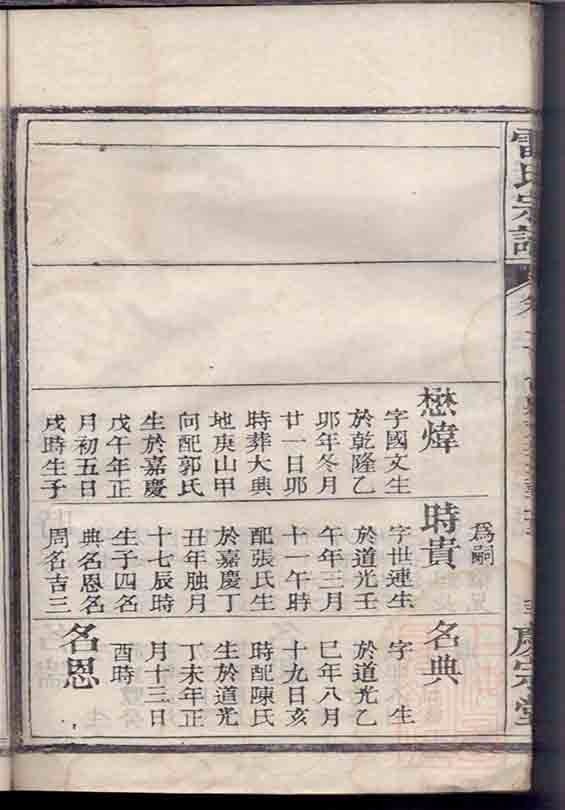 雷氏宗譜
慶宗堂
懋煒
字國文生
於乾隆乙
卯年冬月
廿一日卯
時葬大典
地庚山甲
向配郭氏
生於嘉慶
戊午年正
月初五日
戌時生子
爲嗣
時貴
字世連生
於道光壬
午年三月
十一午時
配張氏生
於嘉慶丁
丑年融月
十七辰時
生子四名
典名恩名
周名吉三
名典
字　生
於道光乙
巳年八月
十九日亥
時配陳氏
生於道光
丁未年正
月十三日
酉時
名恩